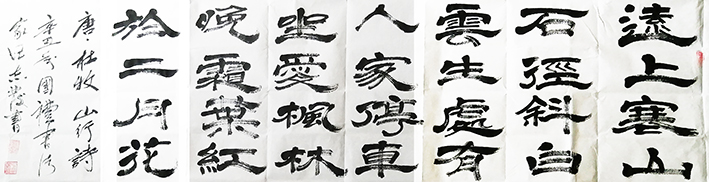 遠上寒山
石徑斜白
雲生處有
人家停車
坐愛楓林
晚霜葉紅
於二月花
唐杜牧山行詩
國禮書法
家
書